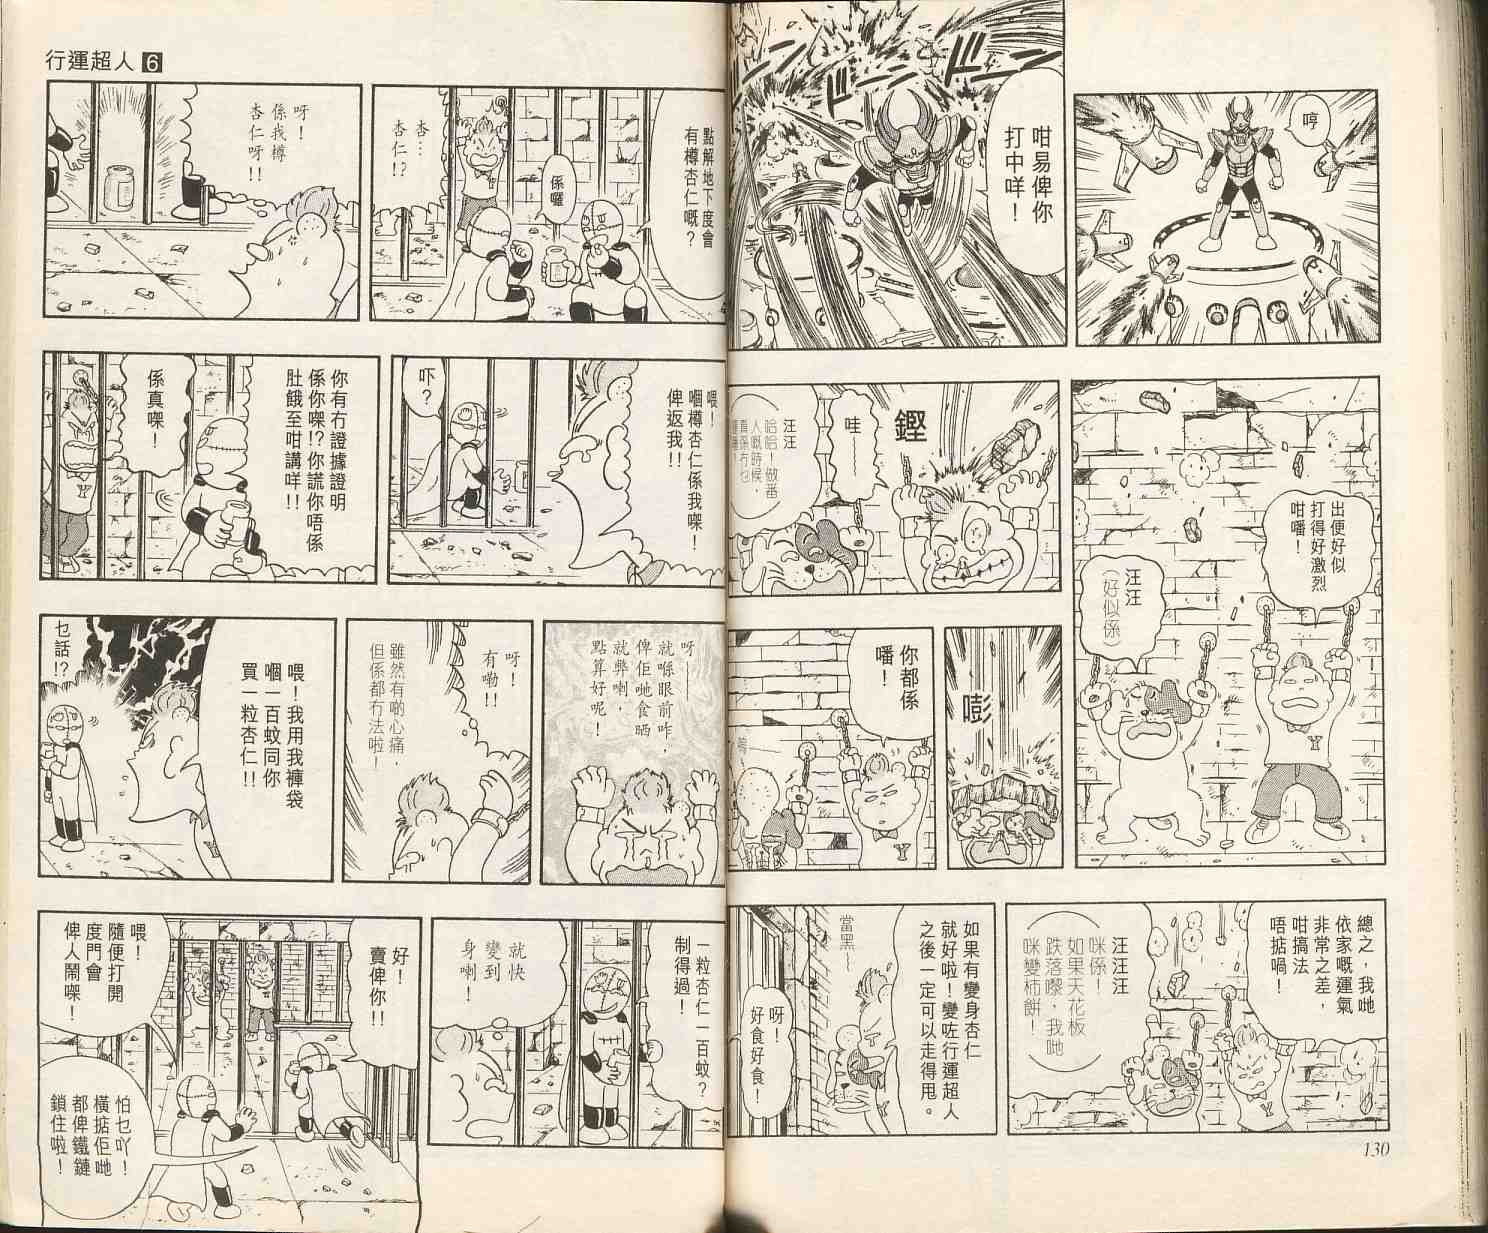 哼
咁易俾你
打中咩！
出便好似
打得好激烈
咁噃！
汪汪
（好似係）
鏗
哇——
汪汪
哈哈！做番
人嘅時候，
真係冇乜
嘭
你都係
噃！
總之，我哋
依家嘅運氣
非常之差，
咁搞法
唔掂喎！
汪汪汪
咪係！
如果天花板
跌落嚟，我哋
咪變柿餅！
如果有變身杏仁
就好啦！變咗行運超人
之後一定可以走得甩。
當黑～
呀！
好食好食！
130
行運超人 6
點解地下度會
有樽杏仁嘅？
係囉
杏…
杏仁!?
呀！
係我樽
杏仁呀!!
喂！
嗰樽杏仁係我㗎！
俾返我!!
吓？
你有冇證據證明
係你㗎!?你謊你唔係
肚餓至咁講咩!!
係真㗎！
呀——
就喺眼前咋，
俾佢哋食晒
就弊喇，
點算好呢！
呀！
有嘞!!
雖然有啲心痛，
但係都冇法啦！
喂！我用我褲袋
嗰一百蚊同你
買一粒杏仁!!
乜話!?
一粒杏仁一百蚊？
制得過！
就快
變到
身喇！
好！
賣俾你!!
喂！
隨便打開
度門會
俾人鬧㗎！
怕乜吖！
橫掂佢哋
都俾鐵鏈
鎖住啦！